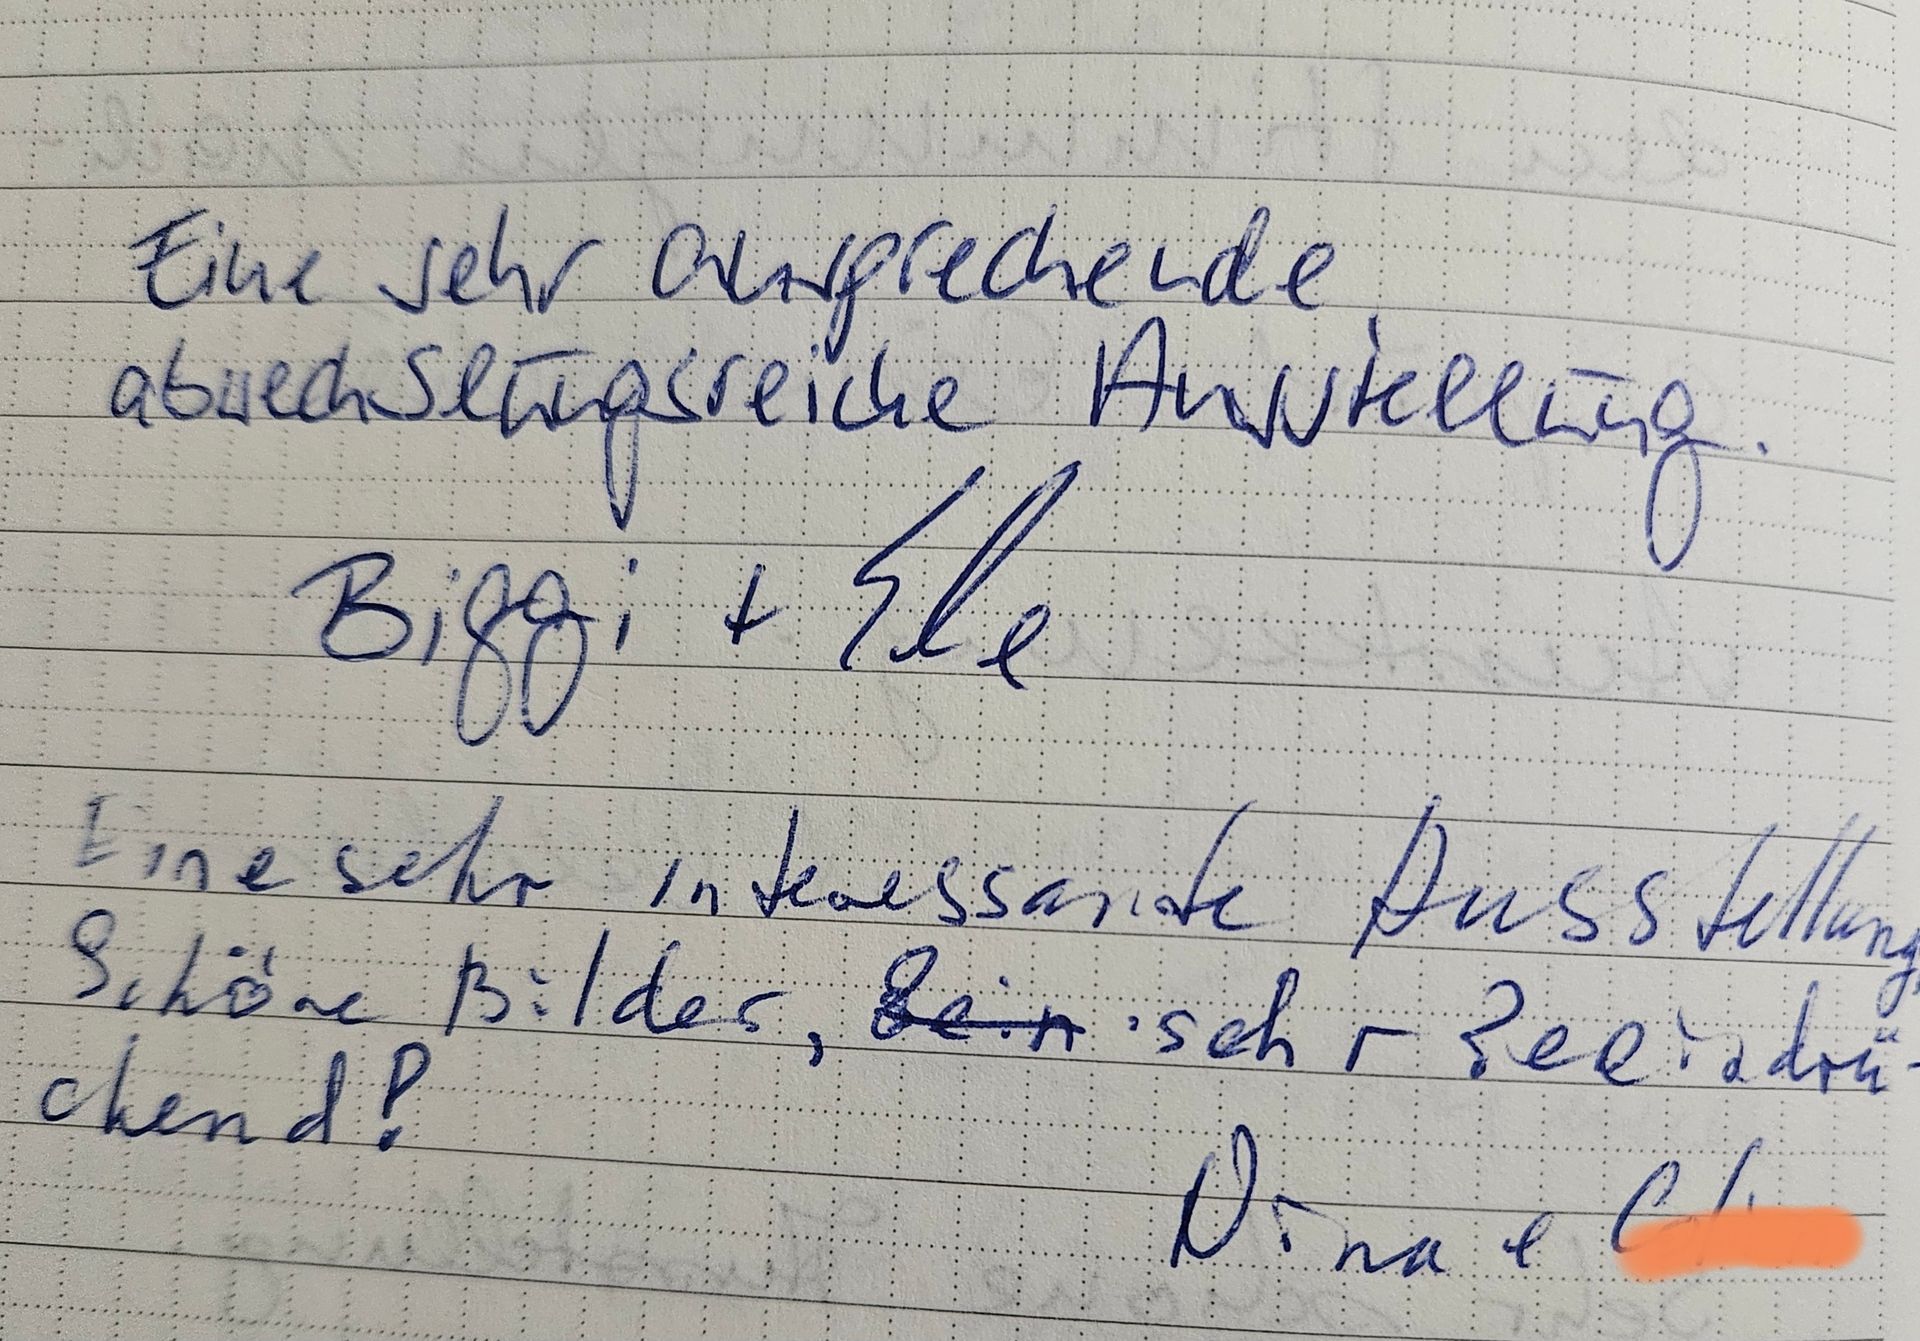 Eine sehr ansprechende
abwechslungsreiche Ausstellung.
Biggi + Ele
Eine sehr interessante Ausstellung,
Schöne Bilder, sehr Beeindrü-
ckend!